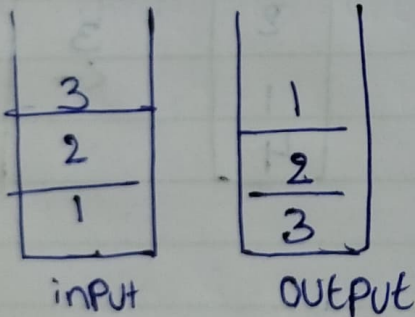 3
2
1
input
1
2
3
output